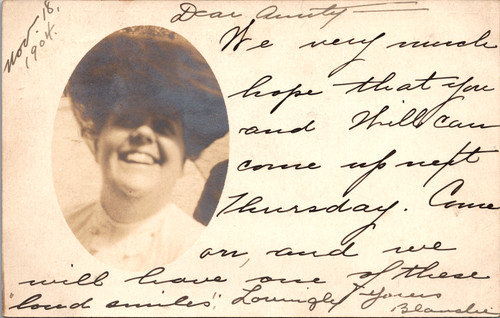 Nov. 18,
1904.
Dear Aunty —
We very much
hope that you
and Will can
come up next
Thursday. Come
on, and we
will have one of these
"loud smiles", Lovingly yours
Blanche